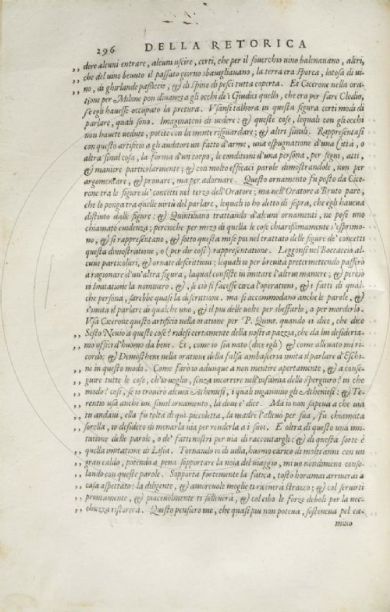 296 DELLA RETORICA
dere alcuni entrare, alcuni uscire, certi, che per il souerchio uino balenauano, altri,
che del uino beuuto il passato giorno sbauigliauano, la terra era sporca, lotosa di ui-
no, di ghirlande passite, & di spine di pesci tutta coperta. Et Cicerone nella ora
tione per Milone pon dinanzi a gli occhi de i Giudici quello, che era per fare Clodio,
se egli hauesse occupato la pretura. Vsansi talhora in questa figura certi modi di
parlare, quali sono. Imaginatoui di uedere: & queste cose, lequali con gli occhi
non hauete uedute, potete con la mente risguardare; & altri simili. Rappresentasi
con questo artificio a gli auditori un fatto d'arme, una espugnatione d'una città, o
altra simil cosa, la forma d'un corpo, le conditioni d'una persona, per segni, atti,
& maniere particolarmente; & con molto efficaci parole dimostrandole, non per
argomentare, & prouare, ma per adornare. Questo ornamento fu posto da Cice-
rone tra le figure de' concetti nel terzo dell'Oratore; ma nell'Oratore a Bruto pare,
che lo ponga tra quelle uirtù del parlare, lequali io ho detto di sopra, che egli haueua
distinto dalle figure: & Quintiliano trattando d'alcuni ornamenti, ne pose uno
chiamato euidenza; percioche per mezo di quella le cose chiarissimamente s'esprimo-
no, & si rappresentano, & sotto questa mise poi nel trattato delle figure de' concetti
questa dimostratione, o (per dir così) rappresentatione. Leggonsi nel Boccaccio al-
cune particolari, & ornate descrittioni; lequali io per breuità pretermettendo passerò
a ragionare d'un'altra figura, laqual consiste in imitare l'altrui maniere; & perciò
in imitatione la nomauano. & se ciò si facesse circa l'operationi, & i fatti di qual
che persona, sarebbe quasi la descrittione. ma si accommodano anche le parole, &
s'imita il parlare di qualche uno, & il piu delle uolte per sbeffarlo, o per morderlo.
Vsa Cicerone questo artificio nella oratione per P. Quint. quando ei dice, che dice
Sesto Neuio è questa cose? ridesi certamente della nostra pazzia, che da lui desideria-
mo officii d'huomo da bene. Et, come io sia nato (dice egli) & come alleuato mi ri-
cordo; & Demosthene nella oratione della falsa ambasceria imita il parlare d'Eschi-
ne in questo modo. Come farò io adunque a non mentire apertamente, & a conse-
guire tutte le cose, ch'io uoglio, senza incorrere nell'infamia dello sperguro? in che
modo? così, se io trouerò alcuni Atheniesi, i quali inganninno gli Atheniesi. & Te-
rentio usa anche un simil ornamento, la doue ei dice. Ma io non sapeua a che una
tu andaui, ella fu tolta di qui piccoletta, la madre l'alleuò per sua, fu chiamata
sorella, io desidero di menarla uia per renderla a i suoi. E oltra di questo una imi-
tatione delle parole, o de' fatti nostri per uia di raccontargli; & di questa sorte è
quella imitatione di Lisia. Tornando io di uilla, huomo carico di molti anni con un
gran caldo, poteuano pena sopportare la noia del uiaggio, mi ueniua nondimeno conso-
lando con queste parole. Sopporta fortemente la fatica, tosto horamai arriuerai a
casa aspettato: la diligente, & amoreuole moglie ti riceuerà stracco; & col seruirti
prontamente, & piaceuolmente ti solleuerà, & col cibo le forze deboli per la uec-
chiezza ristorerà. Questo pensiero me, che quasi piu non poteua, sostenea pel ca-
mino